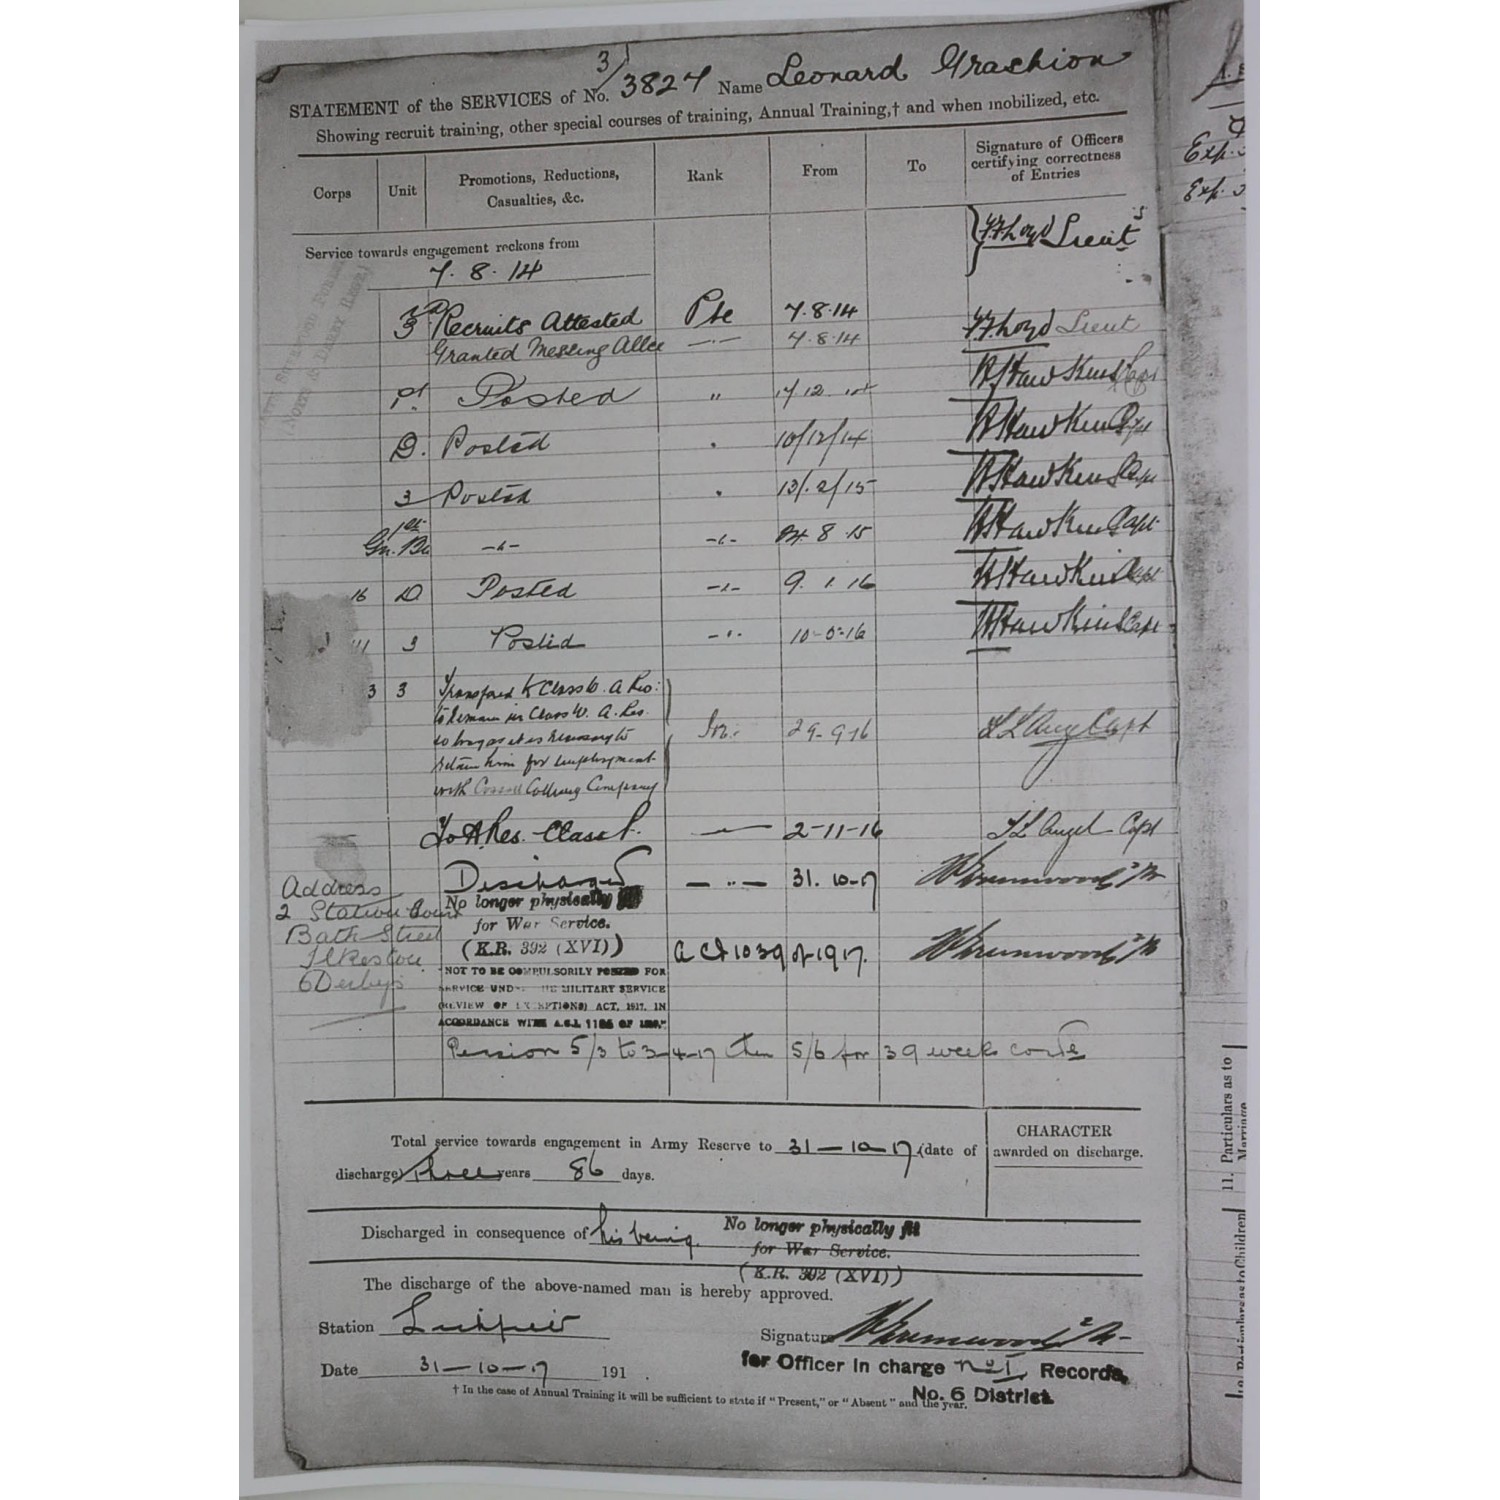 STATEMENT of the SERVICES of No. 3/3827 Name Leonard Grachion
Showing recruit training, other special courses of training, Annual Training,† and when mobilized, etc.
Corps Unit Promotions, Reductions, Casualties, &c. Rank From To Signature of Officers certifying correctness of Entries
Service towards engagement reckons from
7. 8. 14 Lieut
3rd Recruits Attested Pte 7.8.14 Lieut
Granted Messing Allce 7.8.14
Posted " Hawkins Capt
D. Posted 10/12/14 Hawkins Capt
3 Posted 13/2/15 Hawkins Capt
1st 8 15 Hawkins Capt
16 D Posted 9. 1. 16 Hawkins Capt
3 Posted 16 Hawkins Capt
3 3 Transfered to Class W. A Res:
to Remain in Class W. A. Res.
so long as it is necessary to 29-9-16 Capt
retain him for employment
with Cossall Colliery Company
To A Res. Class P. 2-11-16 T L Angel Capt
Discharged 31. 10-17
Address
No longer physically fit
2 Station Court
for War Service.
Bath Street
(K.R. 392 (XVI)) ACI 1039 of 1917.
Ilkeston
Derbys
NOT TO BE COMPULSORILY POSTED FOR
SERVICE UNDER THE MILITARY SERVICE
(REVIEW OF EXCEPTIONS) ACT, 1917, IN
ACCORDANCE WITH A.C.I.
Pension 5/3 to 4-17 then 5/6 for 39 weeks
Total service towards engagement in Army Reserve to 31-10-17 (date of
discharge) Three years 86 days.
CHARACTER
awarded on discharge.
Discharged in consequence of his being No longer physically fit
for War Service.
(K.R. 392 (XVI))
The discharge of the above-named man is hereby approved.
Station
Signature
Date 31-10-17 191 .
for Officer in charge No 1 Records,
No. 6 District.
† In the case of Annual Training it will be sufficient to state if "Present," or "Absent" and the year.
Exp.
Exp.
11. Particulars as to Marriage
10. Particulars as to Children